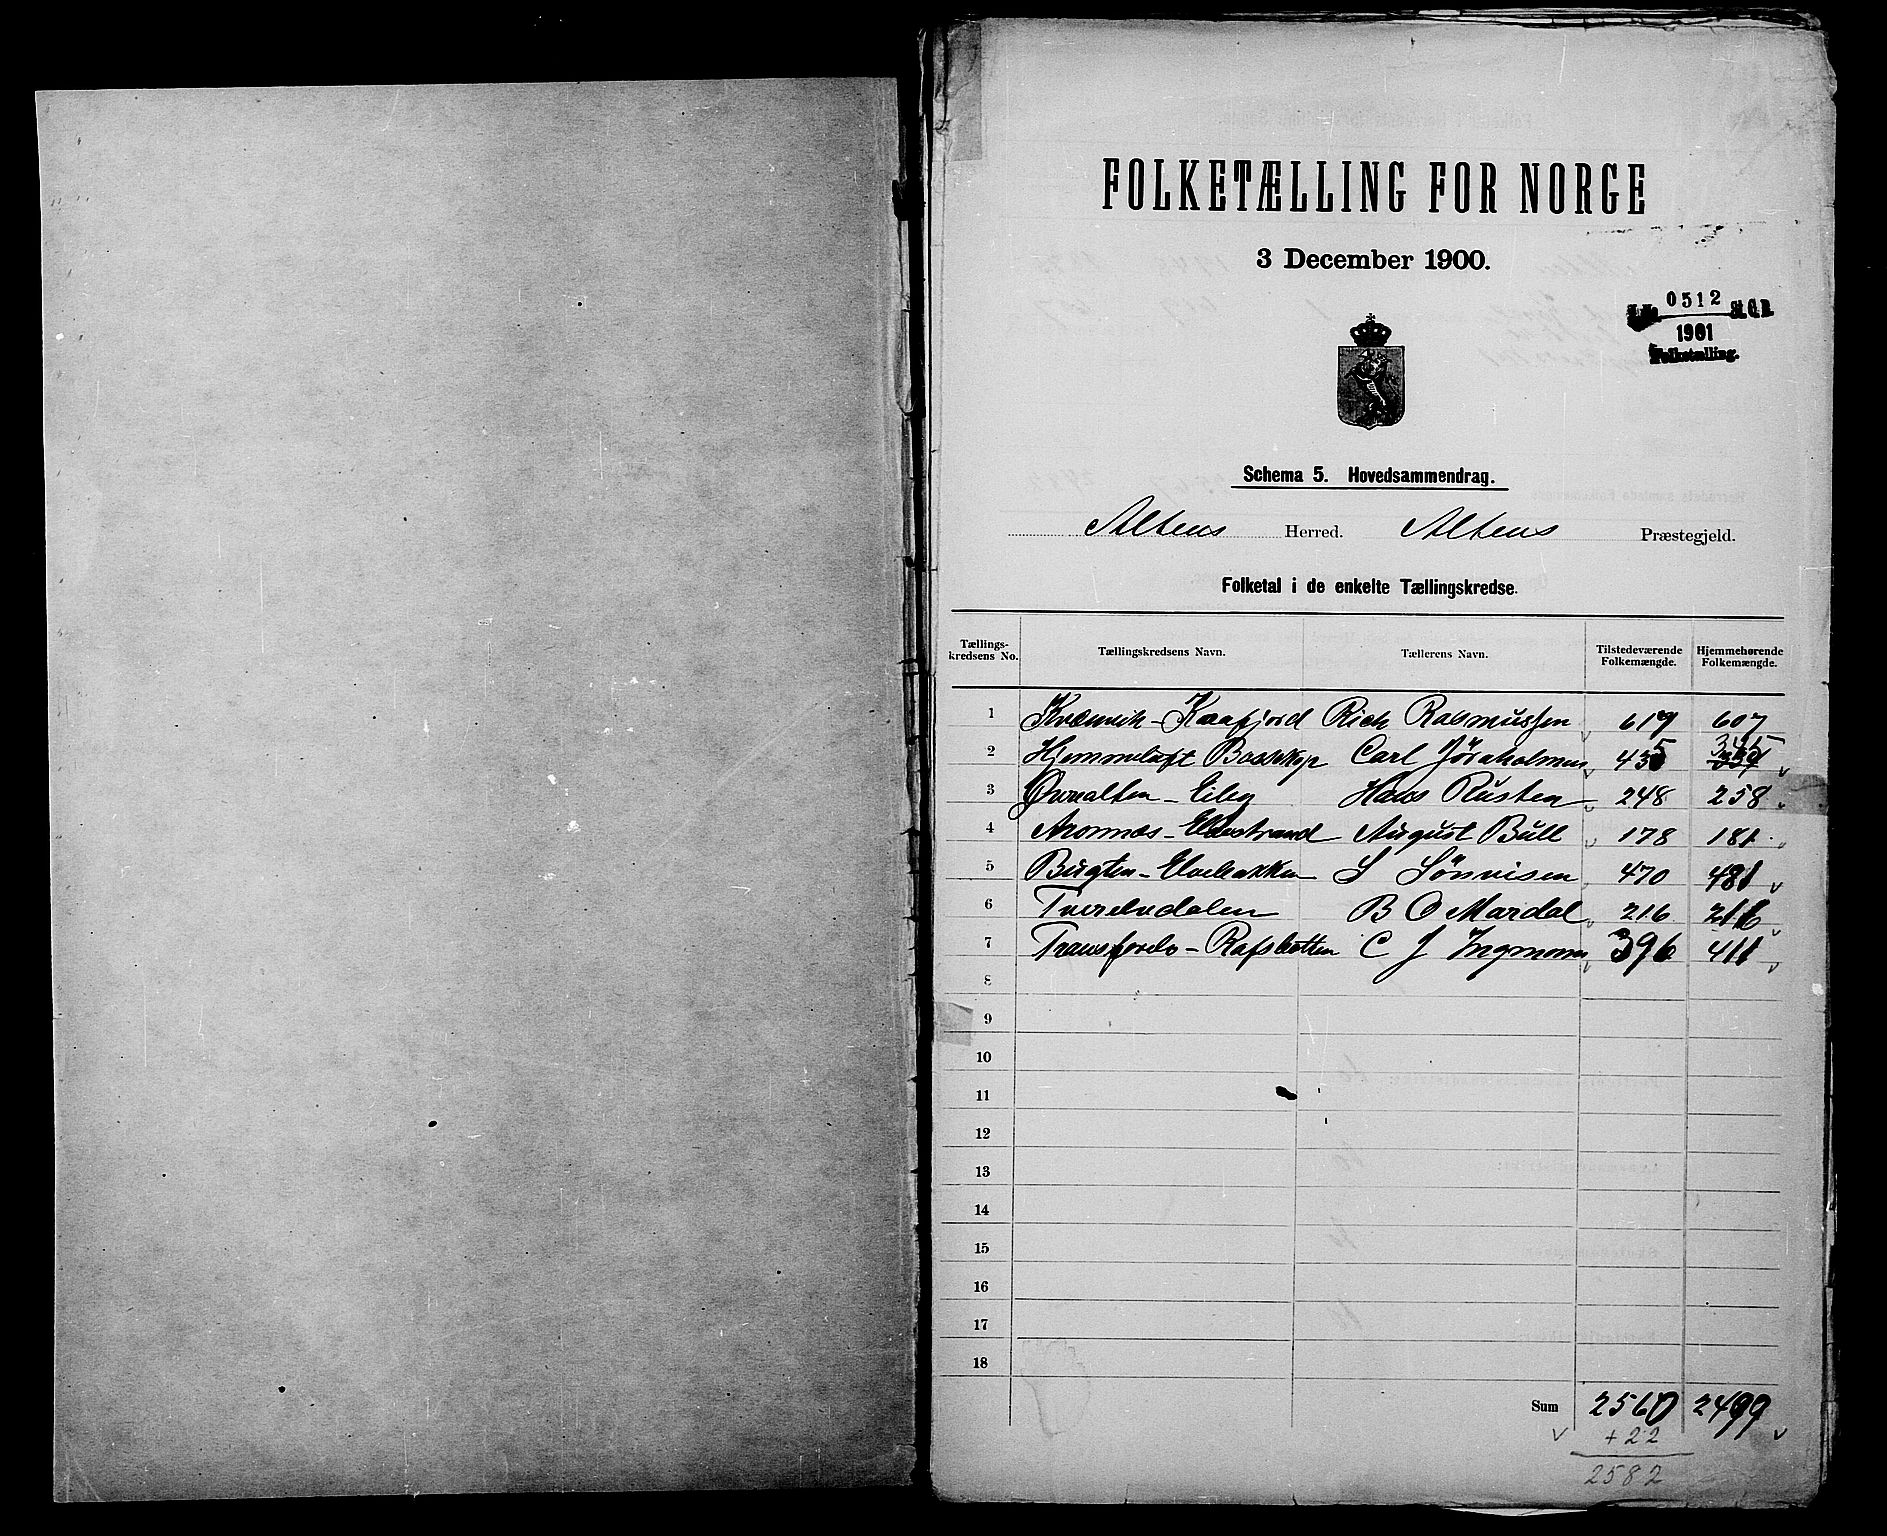 FOLKETÆLLING FOR NORGE
3 December 1900.
0512
St. C. B.
1901
Folketælling.
Schema 5. Hovedsammendrag.
Altens Herred. Altens Præstegjeld.
Folketal i de enkelte Tællingskredse.
Tællings-kredsens No. Tællingskredsens Navn. Tællerens Navn. Tilstedeværende Folkemængde. Hjemmehørende Folkemængde.
1 Kvænvik - Kaafjord Rich Rasmussen 617 607
2 Hjemmeluft Bossekop Carl Jøraholmen 435 345
3 Øvrealten - Eiby Hans Rusten 248 258
4 Aronnæs - Elvestrand August Bull 178 181
5 Bugten - Elvebakken S Sönvisen 470 481
6 Tverelvdalen B O Mardal 216 216
7 Transfarelv - Rafsbotten C J Ingmann 396 411
8
9
10
11
12
13
14
15
16
17
18
Sum 2560 2499
+ 22
2582